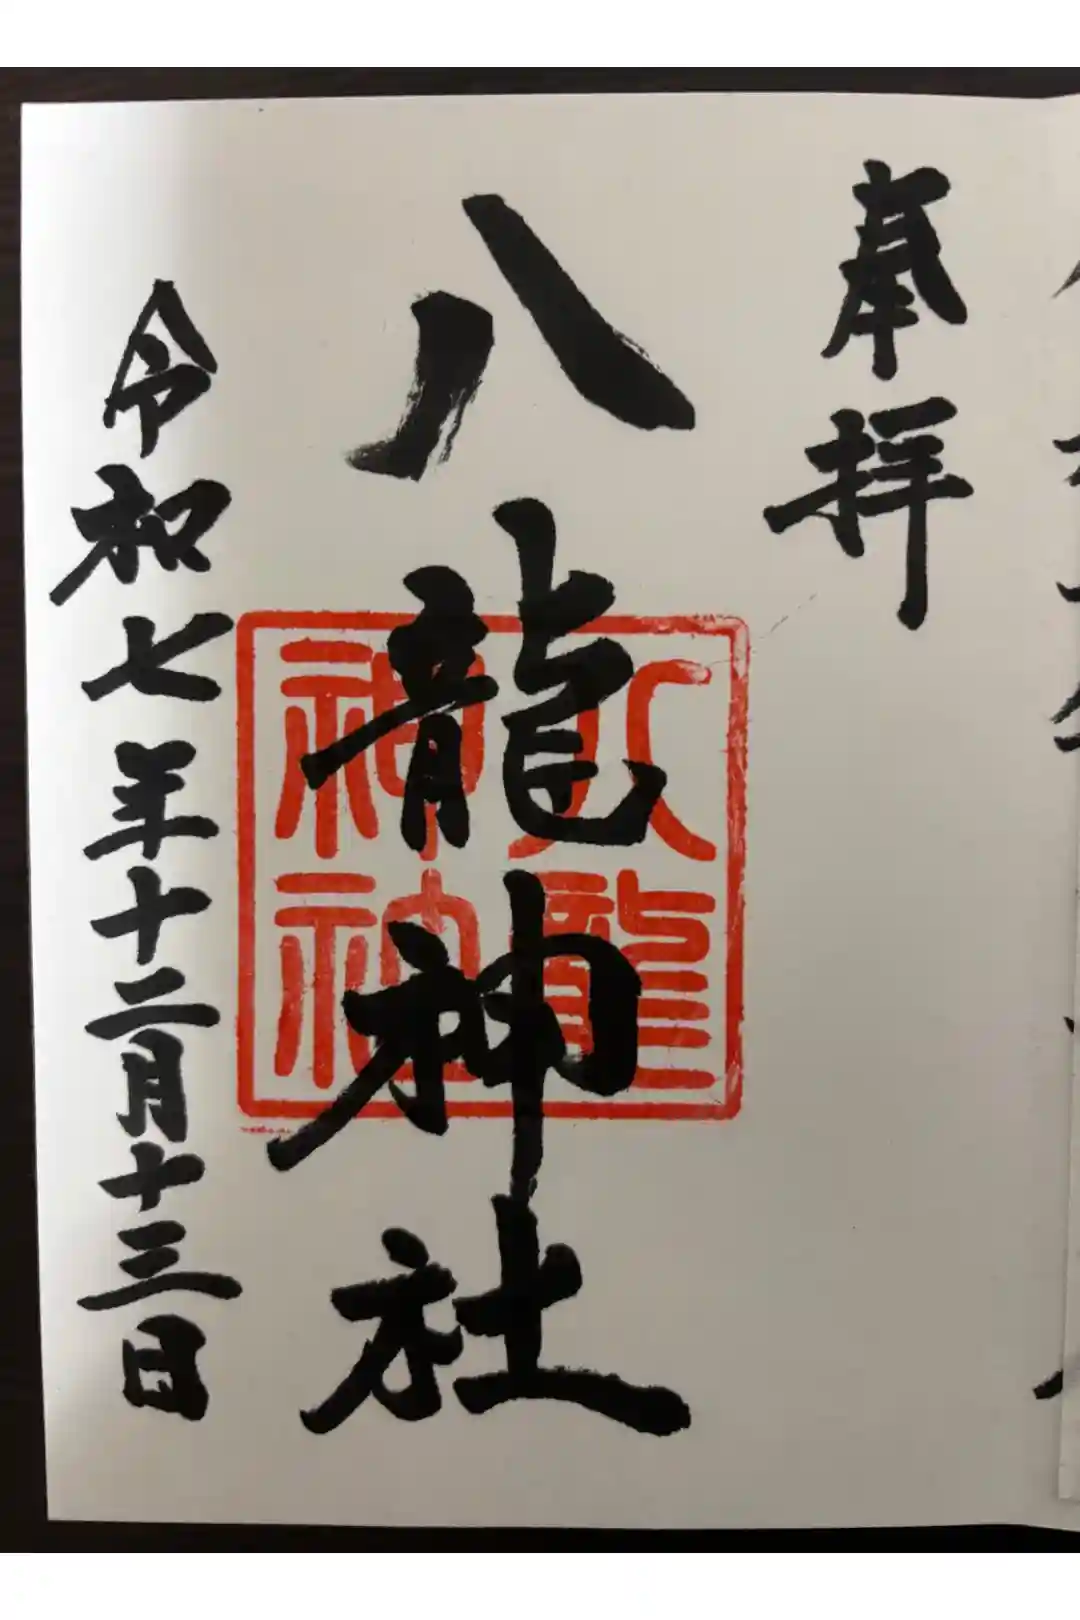 奉拝
八龍神社
八龍
神社
令和七年十二月十三日